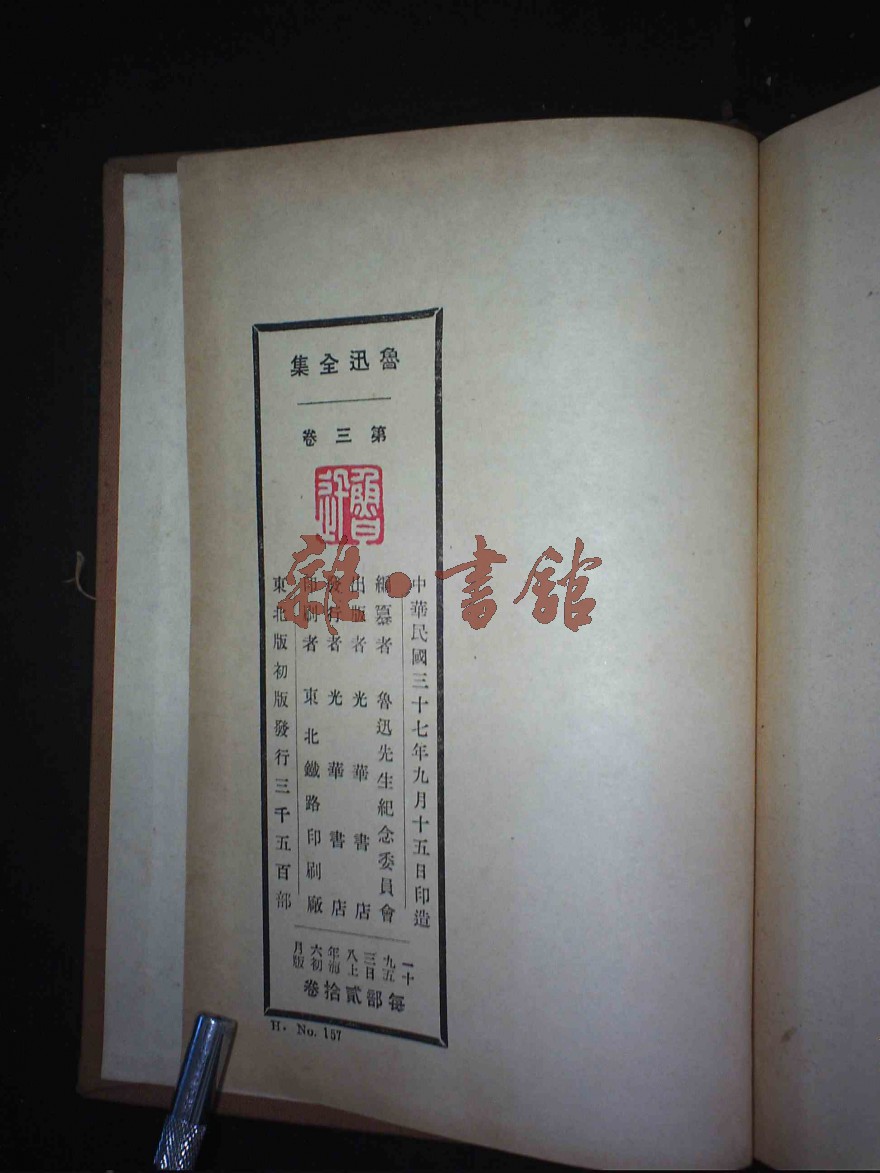 魯迅全集
第三卷
魯迅
中華民國三十七年九月十五日印造
編纂者 魯迅先生紀念委員會
出版者 光華書店
發行者 光華書店
印刷者 東北鐵路印刷廠
東北版初版發行三千五百部
一九三八年六月
十五日上海初版
每部貳拾卷
H. No. 157
雜·書館